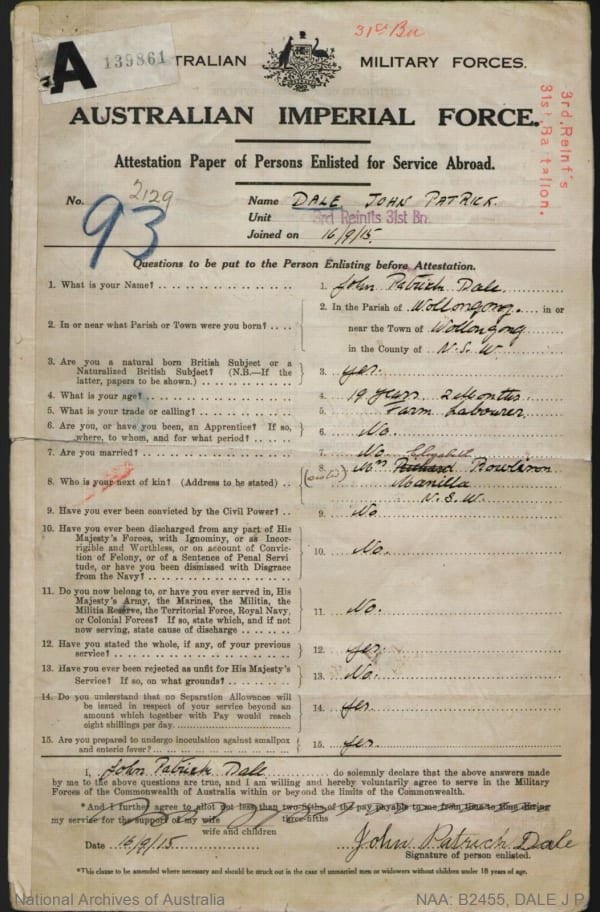 31st Bn
A 139861
TRALIAN MILITARY FORCES.
AUSTRALIAN IMPERIAL FORCE.
3rd. Reinf's
31st. Battalion.
Attestation Paper of Persons Enlisted for Service Abroad.
No. 2129
93
Name DALE JOHN PATRICK.
Unit 3rd Reinfts 31st Bn.
Joined on 16/9/15.
Questions to be put to the Person Enlisting before Attestation.
1. What is your Name? 1. John Patrick Dale
2. In or near what Parish or Town were you born? 2. In the Parish of Wollongong in or
near the Town of Wollongong
in the County of N.S.W.
3. Are you a natural born British Subject or a
Naturalized British Subject? (N.B.—If the
latter, papers to be shown.) 3. yes.
4. What is your age? 4. 19 years 2 Months
5. What is your trade or calling? 5. Farm Labourer
6. Are you, or have you been, an Apprentice? If so,
where, to whom, and for what period? 6. No.
7. Are you married? 7. No
Elizabeth
8. Who is your next of kin? (Address to be stated) (aunt) 8. Mrs Richard Rowlinson
Manilla
N.S.W.
9. Have you ever been convicted by the Civil Power? 9. No.
10. Have you ever been discharged from any part of His
Majesty's Forces, with Ignominy, or as Incor-
rigible and Worthless, or on account of Convic-
tion of Felony, or of a Sentence of Penal Servi-
tude, or have you been Dismissed with Disgrace
from the Navy? 10. No.
11. Do you now belong to, or have you ever served in, His
Majesty's Army, the Marines, the Militia, the
Militia Reserve, the Territorial Force, Royal Navy,
or Colonial Forces? If so, state which, and if not
now serving, state cause of discharge 11. No.
12. Have you stated the whole, if any, of your previous
service? 12. yes.
13. Have you ever been rejected as unfit for His Majesty's
Service? If so, on what grounds? 13. No.
14. Do you understand that no Separation Allowance will
be issued in respect of your service beyond an
amount which together with Pay would reach
eight shillings per day. 14. yes
15. Are you prepared to undergo inoculation against smallpox
and enteric fever? 15. yes.
I, John Patrick Dale do solemnly declare that the above answers made
by me to the above questions are true, and I am willing and hereby voluntarily agree to serve in the Military
Forces of the Commonwealth of Australia within or beyond the limits of the Commonwealth.
*And I further agree to allot not less than two-fifths of the pay payable to me from time to time during
my service for the support of my wife three-fifths
wife and children
Date 16/9/15 John Patrick Dale
Signature of person enlisted.
*This clause to be amended where necessary and should be struck out in the case of unmarried men or widowers without children under 18 years of age.
National Archives of Australia NAA: B2455, DALE J P